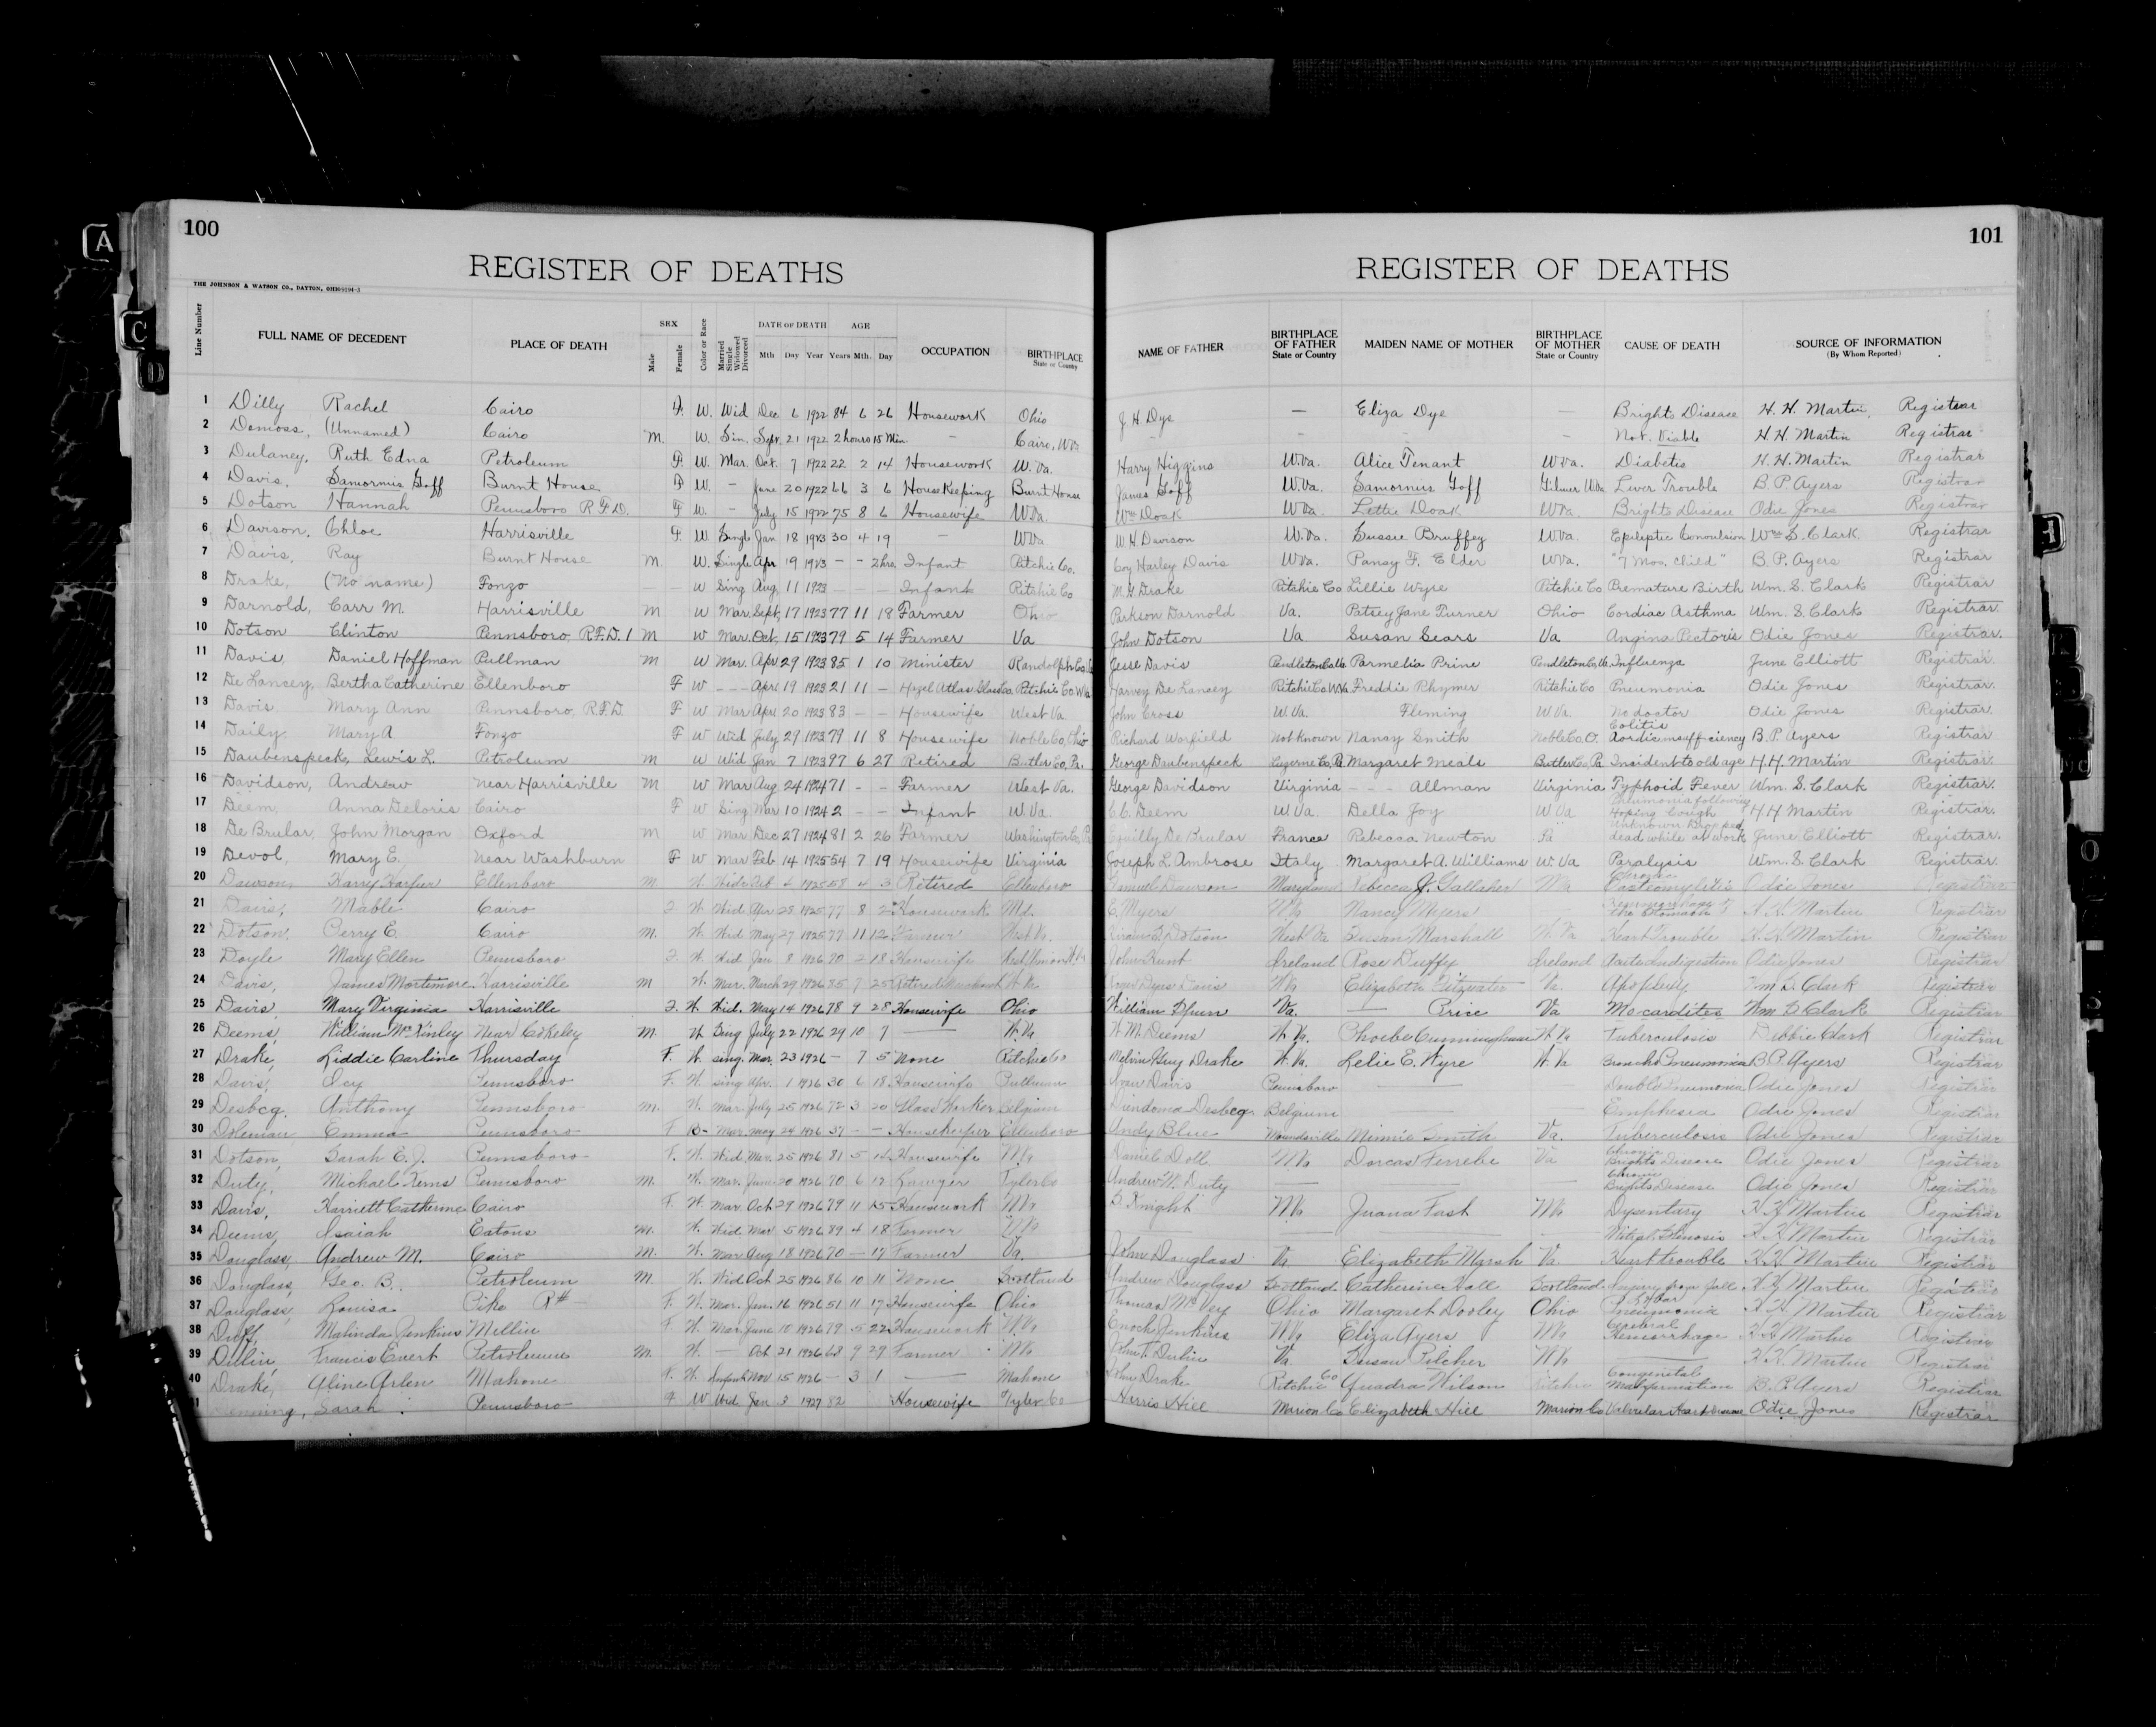 100
REGISTER OF DEATHS
THE JOHNSON & WATSON CO., DAYTON, OHIO
Line Number FULL NAME OF DECEDENT PLACE OF DEATH SEX Male Female Color or Race Married Single Widowed Divorced DATE OF DEATH Mth Day Year AGE Years Mth. Day OCCUPATION BIRTHPLACE State or Country
1 Dilly Rachel Cairo F. W. Wid Dec 6 1922 84 6 26 Housework Ohio
2 Demoss, (Unnamed) Cairo M. W. Sin. Sept. 21 1922 2 hours 15 Min. - Cairo, W Va
3 Dulaney, Ruth Edna Petroleum F. W. Mar. Oct. 7 1922 22 2 14 Housework W. Va.
4 Davis, Samornus Goff Burnt House F W. - June 20 1922 66 3 6 HouseKeeping Burnt House
5 Dotson Hannah Pennsboro R.F.D. F W. - July 15 1922 75 8 6 Housewife W Va.
6 Davison, Chloe Harrisville F. W. Singl Jan 18 1923 30 4 19 - W Va
7 Davis, Ray Burnt House M W. Single Apr 19 1923 - - 2 hrs. Infant Ritchie Co.
8 Drake, (No name) Fonzo W Sing Aug. 11 1923 - - - Infant Ritchie Co
9 Darnold, Carr M. Harrisville M W Mar. Sept, 17 1923 77 11 18 Farmer Ohio
10 Dotson Clinton Pennsboro, R.F.D. 1 M W Mar. Oct, 15 1923 79 5 14 Farmer Va
11 Davis, Daniel Hoffman Pullman M W Mar. Apr 29 1923 85 1 10 Minister Randolph Co.
12 De Lancey, Bertha Catherine Ellenboro F W - - - Apri 19 1923 21 11 - Hazel Atlas Glass Co. Ritchie Co W Va
13 Davis Mary Ann Pennsboro, R.F.D. F W Mar Apri 20 1923 83 - - Housewife West Va.
14 Daily Mary A Fonzo F W Wid July 29 1923 79 11 8 Housewife Noble Co, Ohio
15 Daubenspeck, Lewis L. Petroleum M W Wid Jan 7 1923 87 6 27 Retired Butler Co, Pa.
16 Davidson, Andrew Near Harrisville M W Mar Aug 24 1924 71 - - Farmer West Va.
17 Deem, Anna Deloris Cairo F W Sing Mar 10 1924 2 - - Infant W. Va.
18 De Brular, John Morgan Oxford M W Mar Dec 27 1924 81 2 26 Farmer Washington Co, Pa
19 Devol, Mary E. Near Washburn F W Mar Feb 14 1925 54 7 19 Housewife Virginia
20 Dawson, Harry Ellenboro M. W. 4 1925 58 4 3 Retired Ellenboro
21 Davis, Mable Cairo F W. Wid. Apr 28 1925 77 8 Housework Md.
22 Dotson, Perry C. Cairo M. W. Wid May 27 1925 77 11 12 Farmer West Va.
23 Doyle Mary Ellen Pennsboro F. W. Wid Jan 8 1926 70 2 18 Housewife West Union W. Va
24 Davis, James Mortimore Harrisville M W. Mar. March 29 1926 85 7 25 Retired W. Va.
25 Davis, Mary Virginia Harrisville F. W. Wid. May 14 1926 78 9 28 Housewife Ohio
26 Deems, William McKinley Near Cokeley M. W. Sing July 22 1926 29 10 7 — W. Va
27 Drake, Liddie Carline Thursday F. W. sing. Mar. 23 1926 - 7 5 None Ritchie Co
28 Davis, Ocy Pennsboro F. W. sing Apr. 1 1926 30 6 18 Housewife Pullman
29 Desbcq. Anthony Pennsboro M. W. Mar. July 25 1926 72 3 20 Glass Worker Belgium
30 Emma Pennsboro F B- Mar. May 24 1926 37 - - Housekeeper Ellenboro
31 Dotson, Sarah E. J. Pennsboro F. W. Wid. Mar. 25 1926 81 5 14 Housewife W Va
32 Duty, Michael Kems Pennsboro M. W. Mar. June 20 1926 70 6 12 Lawyer Tyler Co
33 Davis, Harriett Catherine Cairo F. W. Mar Oct 29 1926 79 11 15 Housework W Va
34 Deems, Isaiah Eatons M. W. Wid. Mar 5 1926 89 4 18 Farmer W Va
35 Douglass, Andrew M. Cairo M. W. Mar Aug 18 1926 70 - 17 Farmer Va.
36 Douglass, Geo. B. Petroleum M. W. Wid Oct 25 1926 86 10 11 None Scotland
37 Douglass, Louisa Pike R# F. W. Mar. Jan. 16 1926 51 11 17 Housewife Ohio
38 Duff, Malinda Jenkins Mellin F W. Mar June 10 1926 79 5 22 Housework W Va
39 Dulin, Francis Evert Petroleum M. W. — Oct 21 1926 68 9 29 Farmer W Va
40 Drake, Aline Arlen Mahone F. W. Infant Nov. 15 1926 - 3 1 — Mahone
Sarah Pennsboro F W Wid. Jan 3 1927 82 Housewife Tyler Co
101
REGISTER OF DEATHS
NAME OF FATHER BIRTHPLACE OF FATHER State or Country MAIDEN NAME OF MOTHER BIRTHPLACE OF MOTHER State or Country CAUSE OF DEATH SOURCE OF INFORMATION (By Whom Reported)
J. H. Dye — Eliza Dye — Brights Disease H. H. Martin, Registrar
- - - - Not Viable H. H. Martin Registrar
Harry Higgins W. Va. Alice Tenant W Va. Diabetis H. H. Martin Registrar
James Goff W. Va. Samornus Goff Gilmer W. Va Liver Trouble B. P. Ayers Registrar
Wm Doak W Va. Lettie Doak W Va Brights Disease Odie Jones Registrar
W. H. Davison W. Va. Susie Bruffey W Va. Epileptic Convulsion Wm S. Clark Registrar
Coy Harley Davis W Va. Pansy F. Elder W Va. "7 Mos. child" B. P. Ayers Registrar
M. G. Drake Ritchie Co Lillie Wyre Ritchie Co Premature Birth Wm. S. Clark Registrar
Parkson Darnold Va. Patsey Jane Turner Ohio Cordiac Asthma Wm. S. Clark Registrar.
John Dotson Va Susan Sears Va Angina Pectoris Odie Jones Registrar.
Jesse Davis Pendleton Co. Va Parmelia Prine Pendleton Co. Va. Influenza June Elliott Registrar.
Harvey De Lancey Ritchie Co W Va Freddie Rhymer Ritchie Co Pneumonia Odie Jones Registrar.
John Cross W. Va. Fleming W Va. No doctor Odie Jones Registrar.
Richard Warfield Not Known Nancy Smith Noble Co O. Colitis Aordic insufficiency B. P. Ayers Registrar
George Daubenspeck Luzerne Co, Pa Margaret Meals Butler Co, Pa Insident to old age H. H. Martin Registrar.
George Davidson Virginia - - - Allman Virginia Typhoid Fever Wm. S. Clark Registrar.
C. C. Deem W. Va. Della Joy W Va Pneumonia following Hoping Cough H H Martin Registrar.
De Brular France Rebecca Newton Pa Unknown Dropped dead while at work June Elliott Registrar.
Joseph L. Ambrose Italy Margaret A. Williams W Va Paralysis Wm. S. Clark Registrar.
Samuel Dawson Maryland Rebecca J. Gallaher W Va Chronic Odie Jones Registrar
E. Myers W Va Nancy Myers the Stomach H. H. Martin Registrar
Dotson West Va Susan Marshall W. Va Heart Trouble H. H. Martin Registrar
John Hunt Ireland Rose Duffey Ireland Indigestion Odie Jones Registrar
Davis W Va Elizabeth Fitzwater Va. Wm S. Clark Registrar
William Va. — Price Va Mocarditis Wm S Clark Registrar
W. M. Deems W. Va. Phoebe Cunningham W Va Tuberculosis Debbie Clark Registrar
Melvin Guy Drake W. Va. Lelie E. Wyre W. Va Broncho Pneumonia B. P. Ayers Registrar
Davis Pennsboro — Double Pneumonia Odie Jones Registrar
Desbcq. Belgium — Odie Jones Registrar
Andy Blue Moundsville Minnie Smith Va. Tuberculosis Odie Jones Registrar
Daniel Doll W Va Dorcas Ferrebe Va Chronic Brights Disease Odie Jones Registrar
Andrew M. Duty — — — Chronic Brights Disease Odie Jones Registrar
Knight W Va Juana Fast W Va Dysentary H. H. Martin Registrar
— — — H. H. Martin Registrar
John Douglass Va Elizabeth Marsh Va. Heart trouble H. H. Martin Registrar
Andrew Douglass Scotland Catherine Hall Scotland Injury from fall H. H. Martin Registrar
Thomas McVey Ohio Margaret Dooley Ohio Lobar Pneumonia H. H. Martin Registrar
Enoch Jenkins W Va Eliza Ayers W Va Cerebral Hemorrhage H. H. Martin Registrar
John T. Dulin Va Susan Pilcher W Va — H. H. Martin Registrar
John Drake Ritchie Co Quadra Wilson Ritchie Congenital Malformation B. P. Ayers Registrar
Harris Hill Marion Co Elizabeth Hill Marion Co Valvular Heart Disease Odie Jones Registrar